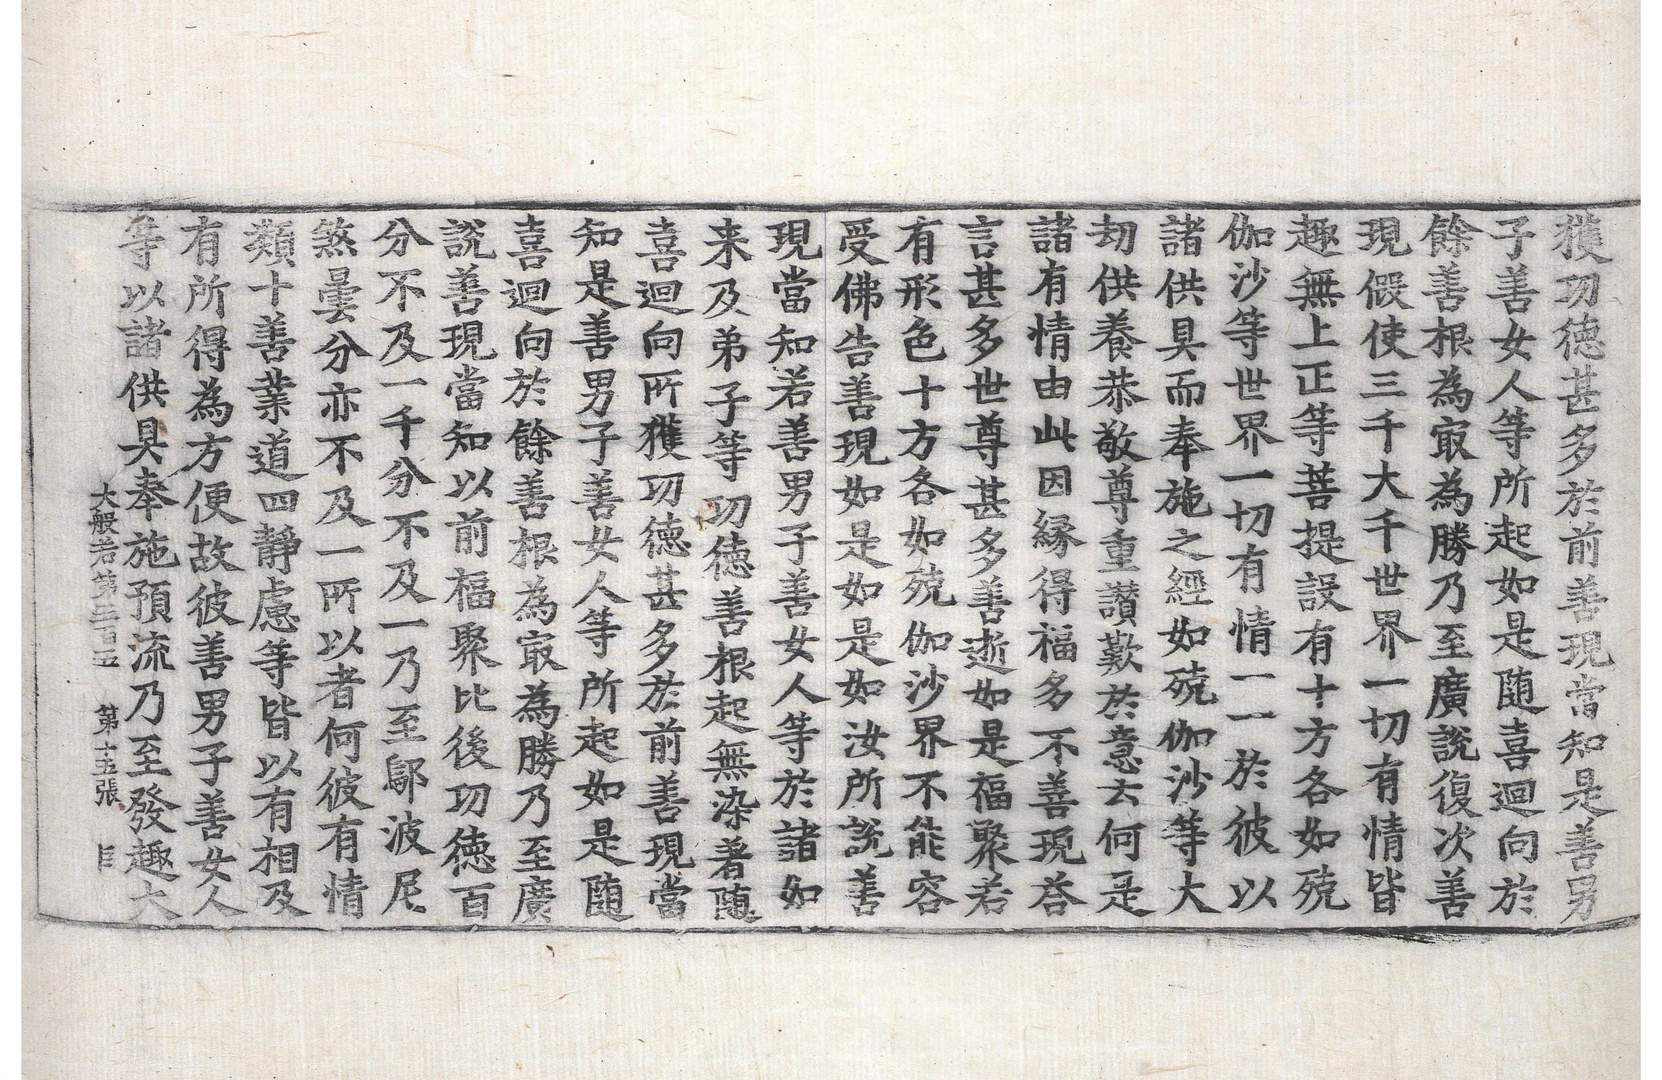 獲功德甚多於前善現當知是善男
子善女人等所起如是随喜迴向於
餘善根為㝡為勝乃至廣說復次善
現假使三千大千世界一切有情皆
趣無上正等菩提設有十方各如殑
伽沙等世界一切有情一一於彼以
諸供具而奉施之經如殑伽沙等大
劫供養恭敬尊重讃歎於意云何是
諸有情由此因縁得福多不善現荅
言甚多世尊甚多善逝如是福聚若
有形色十方各如殑伽沙界不能容
受佛告善現如是如是如汝所說善
現當知若善男子善女人等於諸如
来及弟子等功德善根起無染著随
喜迴向所獲功德甚多於前善現當
知是善男子善女人等所起如是随
喜迴向於餘善根為㝡為勝乃至廣
說善現當知以前福聚比後功德百
分不及一千分不及一乃至鄔波尼
煞曇分亦不及一所以者何彼有情
類十善業道四靜慮等皆以有相及
有所得為方便故彼善男子善女人
等以諸供具奉施預流乃至發趣大
大般若第三百五 第十五張